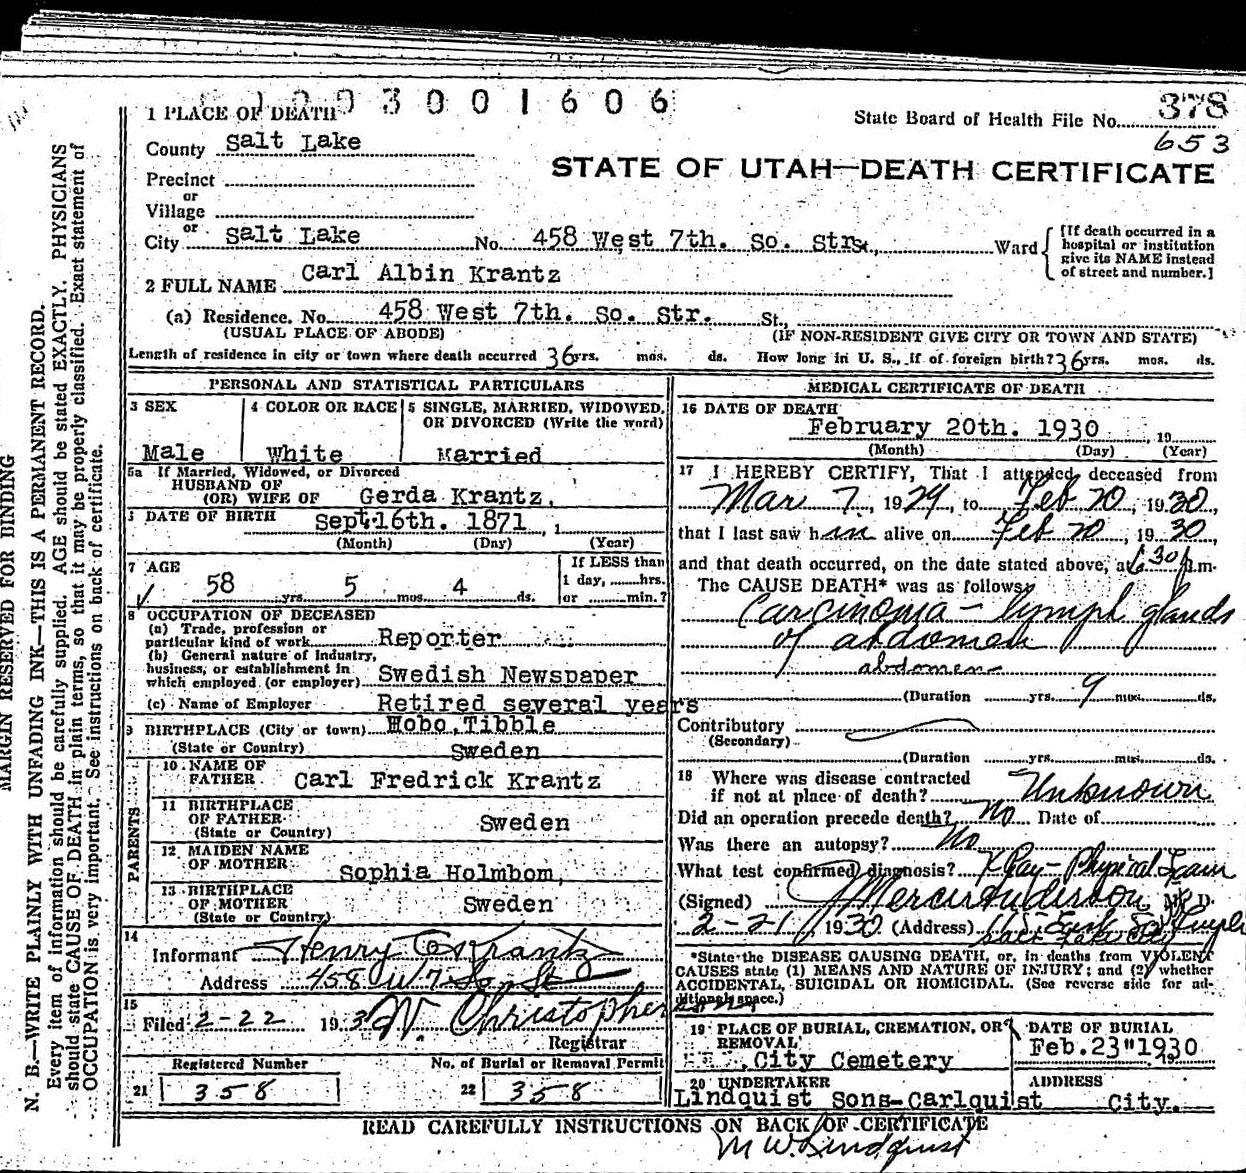 1003001606
378
653
1 PLACE OF DEATH
State Board of Health File No.
County Salt Lake
STATE OF UTAH—DEATH CERTIFICATE
Precinct
or
Village
or
City Salt Lake No. 458 West 7th. So. Str. Ward
[If death occurred in a hospital or institution give its NAME instead of street and number.]
2 FULL NAME Carl Albin Krantz
(a) Residence. No. 458 West 7th. So. Str. St.,
(USUAL PLACE OF ABODE) (IF NON-RESIDENT GIVE CITY OR TOWN AND STATE)
Length of residence in city or town where death occurred 36 yrs. mos. ds. How long in U. S., if of foreign birth? 36 yrs. mos. ds.
PERSONAL AND STATISTICAL PARTICULARS
3 SEX
Male
4 COLOR OR RACE
White
5 SINGLE, MARRIED, WIDOWED, OR DIVORCED (Write the word)
Married
5a If Married, Widowed, or Divorced
HUSBAND OF
(OR) WIFE OF Gerda Krantz.
DATE OF BIRTH Sept.16th. 1871, 1
(Month) (Day) (Year)
7 AGE
58 yrs. 5 mos. 4 ds.
If LESS than
1 day, hrs.
or min.?
8 OCCUPATION OF DECEASED
(a) Trade, profession or
particular kind of work Reporter
(b) General nature of Industry,
business, or establishment in
which employed (or employer) Swedish Newspaper
(c) Name of Employer Retired several years
9 BIRTHPLACE (City or town) Hobo, Tibble
(State or Country) Sweden
PARENTS
10 NAME OF
FATHER Carl Fredrick Krantz
11 BIRTHPLACE
OF FATHER Sweden
(State or Country)
12 MAIDEN NAME
OF MOTHER Sophia Holmbom,
13 BIRTHPLACE
OF MOTHER Sweden
(State or Country)
14
Informant Henry O. Krantz
Address 458 W 7 So St
15
Filed 2-22 193 W. Christopherson
Registrar
Registered Number No. of Burial or Removal Permit
21 358 22 358
MEDICAL CERTIFICATE OF DEATH
16 DATE OF DEATH
February 20th. 1930, 19
(Month) (Day) (Year)
17 I HEREBY CERTIFY, That I attended deceased from
Mar 7, 1929, to Feb 20, 1930,
that I last saw him alive on Feb 20, 1930,
and that death occurred, on the date stated above, at 6 30 p.m.
The CAUSE DEATH* was as follows:
Carcinoma — lymph glands
of abdomen
abdomen
(Duration yrs. 9 mos. ds.
Contributory
(Secondary)
(Duration yrs. mos. ds.
18 Where was disease contracted
if not at place of death? Unknown
Did an operation precede death? No Date of
Was there an autopsy? No
What test confirmed diagnosis? X Ray — Physical Exam
(Signed) M. D.
2-21, 1930 (Address) East So Temple
Salt Lake City
*State the DISEASE CAUSING DEATH, or, in deaths from VIOLENT
CAUSES state (1) MEANS AND NATURE OF INJURY; and (2) whether
ACCIDENTAL, SUICIDAL OR HOMICIDAL. (See reverse side for ad-
ditional space.)
19 PLACE OF BURIAL, CREMATION, OR
REMOVAL
City Cemetery
DATE OF BURIAL
Feb.23"1930 19
20 UNDERTAKER
Lindquist Sons-Carlquist
ADDRESS
City.
READ CAREFULLY INSTRUCTIONS ON BACK OF CERTIFICATE
M W Lindquist
MARGIN RESERVED FOR BINDING
N. B.—WRITE PLAINLY WITH UNFADING INK—THIS IS A PERMANENT RECORD.
Every item of information should be carefully supplied. AGE should be stated EXACTLY. PHYSICIANS
should state CAUSE OF DEATH in plain terms, so that it may be properly classified. Exact statement of
OCCUPATION is very important. See instructions on back of certificate.